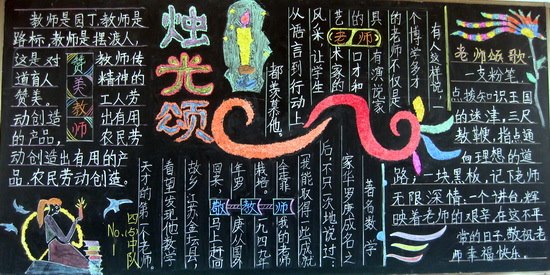 烛光颂
教师是园丁,教师是
路标,教师是摆渡人,
这是对
道育人
赞美。
动创造
的产品,
赞美教师
教师传
精神的
工人劳
出有用
农民劳
动创造出有用的产
品,农民劳动创造。
四(5)中队
No.1
有人这样说,
一个博学多才
的老师不仅是
具有演说家
的口才和
艺术家的
风采,让学生
从语言到行动上
都羡慕他。
老师
著名数学
家华罗庚成名之
后,不只一次地说过:
我能取得一些成就
全靠我的老师
栽培。一九四九
年罗庚从国外
回来,马上赶回
故乡江苏金坛县,
看望发现他数学
天才的第一个老师。
敬教师
老师颂歌
一支粉笔
点拨知识王国
的迷津,三尺
教鞭,指点通
向理想的道
路,一块黑板,记下老师
无限深情,一个讲台,辉
映着老师的艰辛,在这不平
常的日子,敬祝老
师幸福快乐。